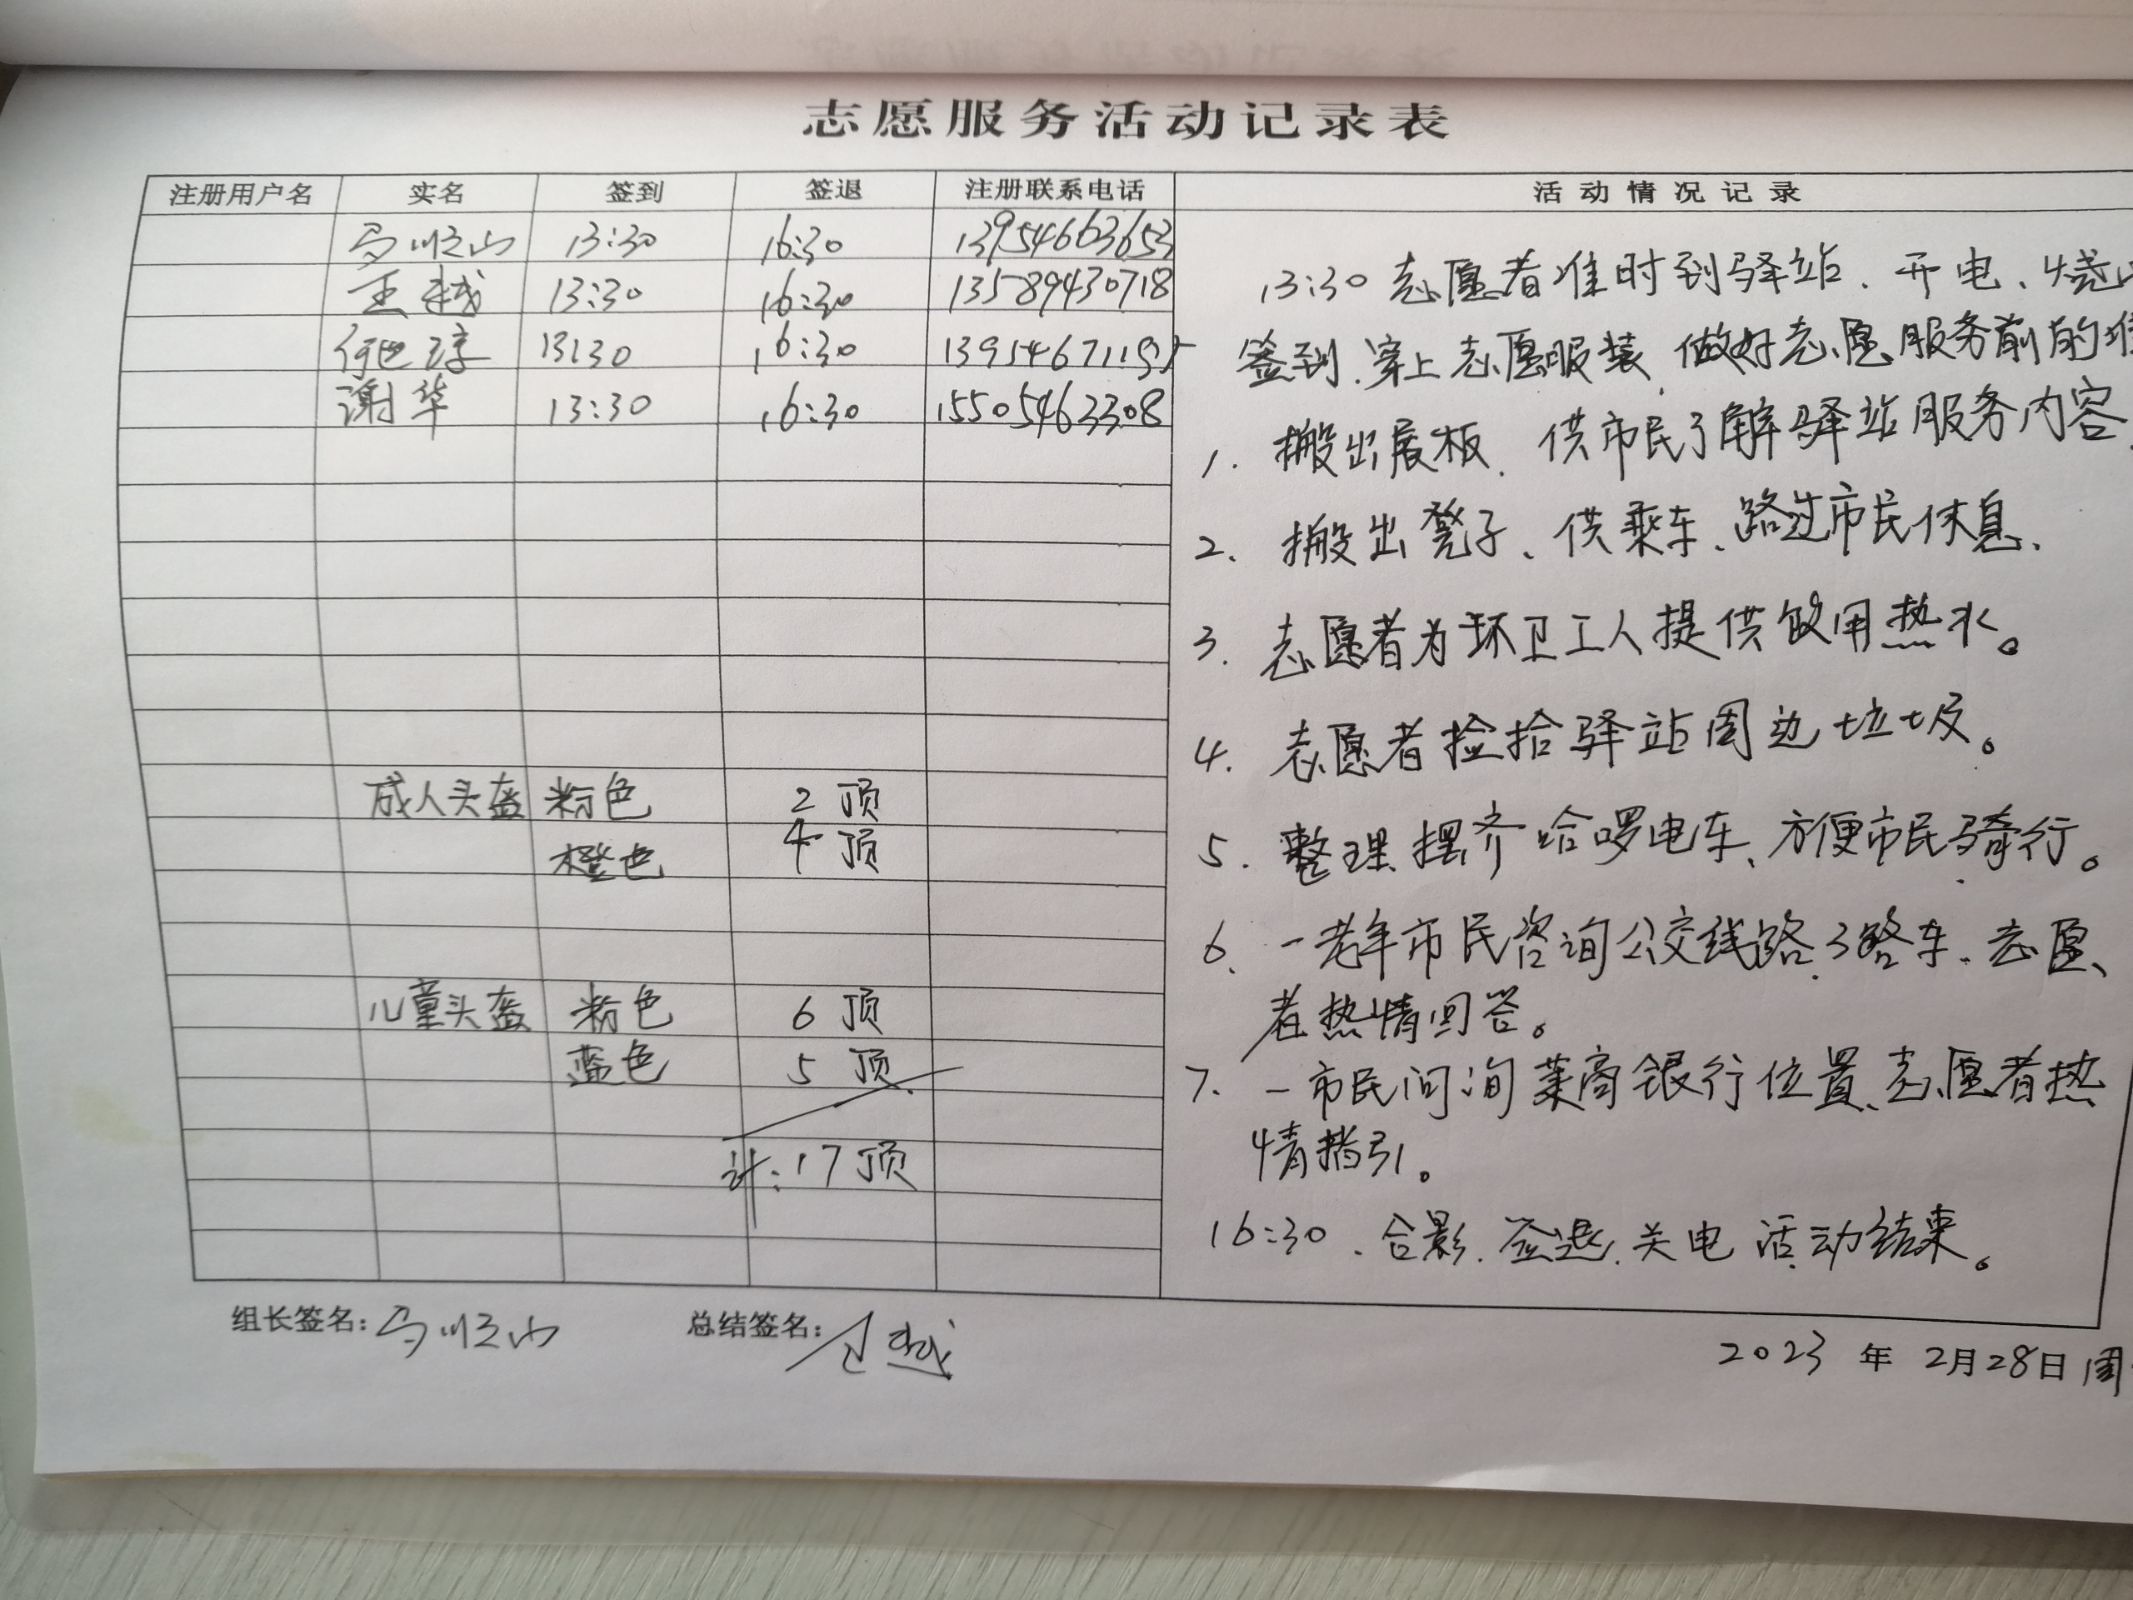 志愿服务活动记录表
注册用户名 实名 签到 签退 注册联系电话 活动情况记录
马顺山 13:30 16:30 13954663653
王越 13:30 16:30 13589430718
13:30 16:30 13954671195
谢华 13:30 16:30 15505463308
成人头盔 粉色 2顶
橙色 4顶
儿童头盔 粉色 6顶
蓝色 5顶
计:17顶
13:30志愿者准时到驿站、开电、烧
签到、穿上志愿服装、做好志愿服务前的准
1. 搬出展板、供市民了解驿站服务内容、
2、搬出凳子、供乘车、路过市民休息、
3. 志愿者为环卫工人提供饮用热水。
4. 志愿者捡拾驿站周边垃圾。
5. 整理摆齐哈啰电车、方便市民骑行。
6、一老年市民咨询公交线路3路车、志愿
者热情回答。
7. 一市民问询莱商银行位置、志愿者热
情指引。
16:30、合影、签退、关电 活动结束。
组长签名:马顺山 总结签名:王越
2023年2月28日 周